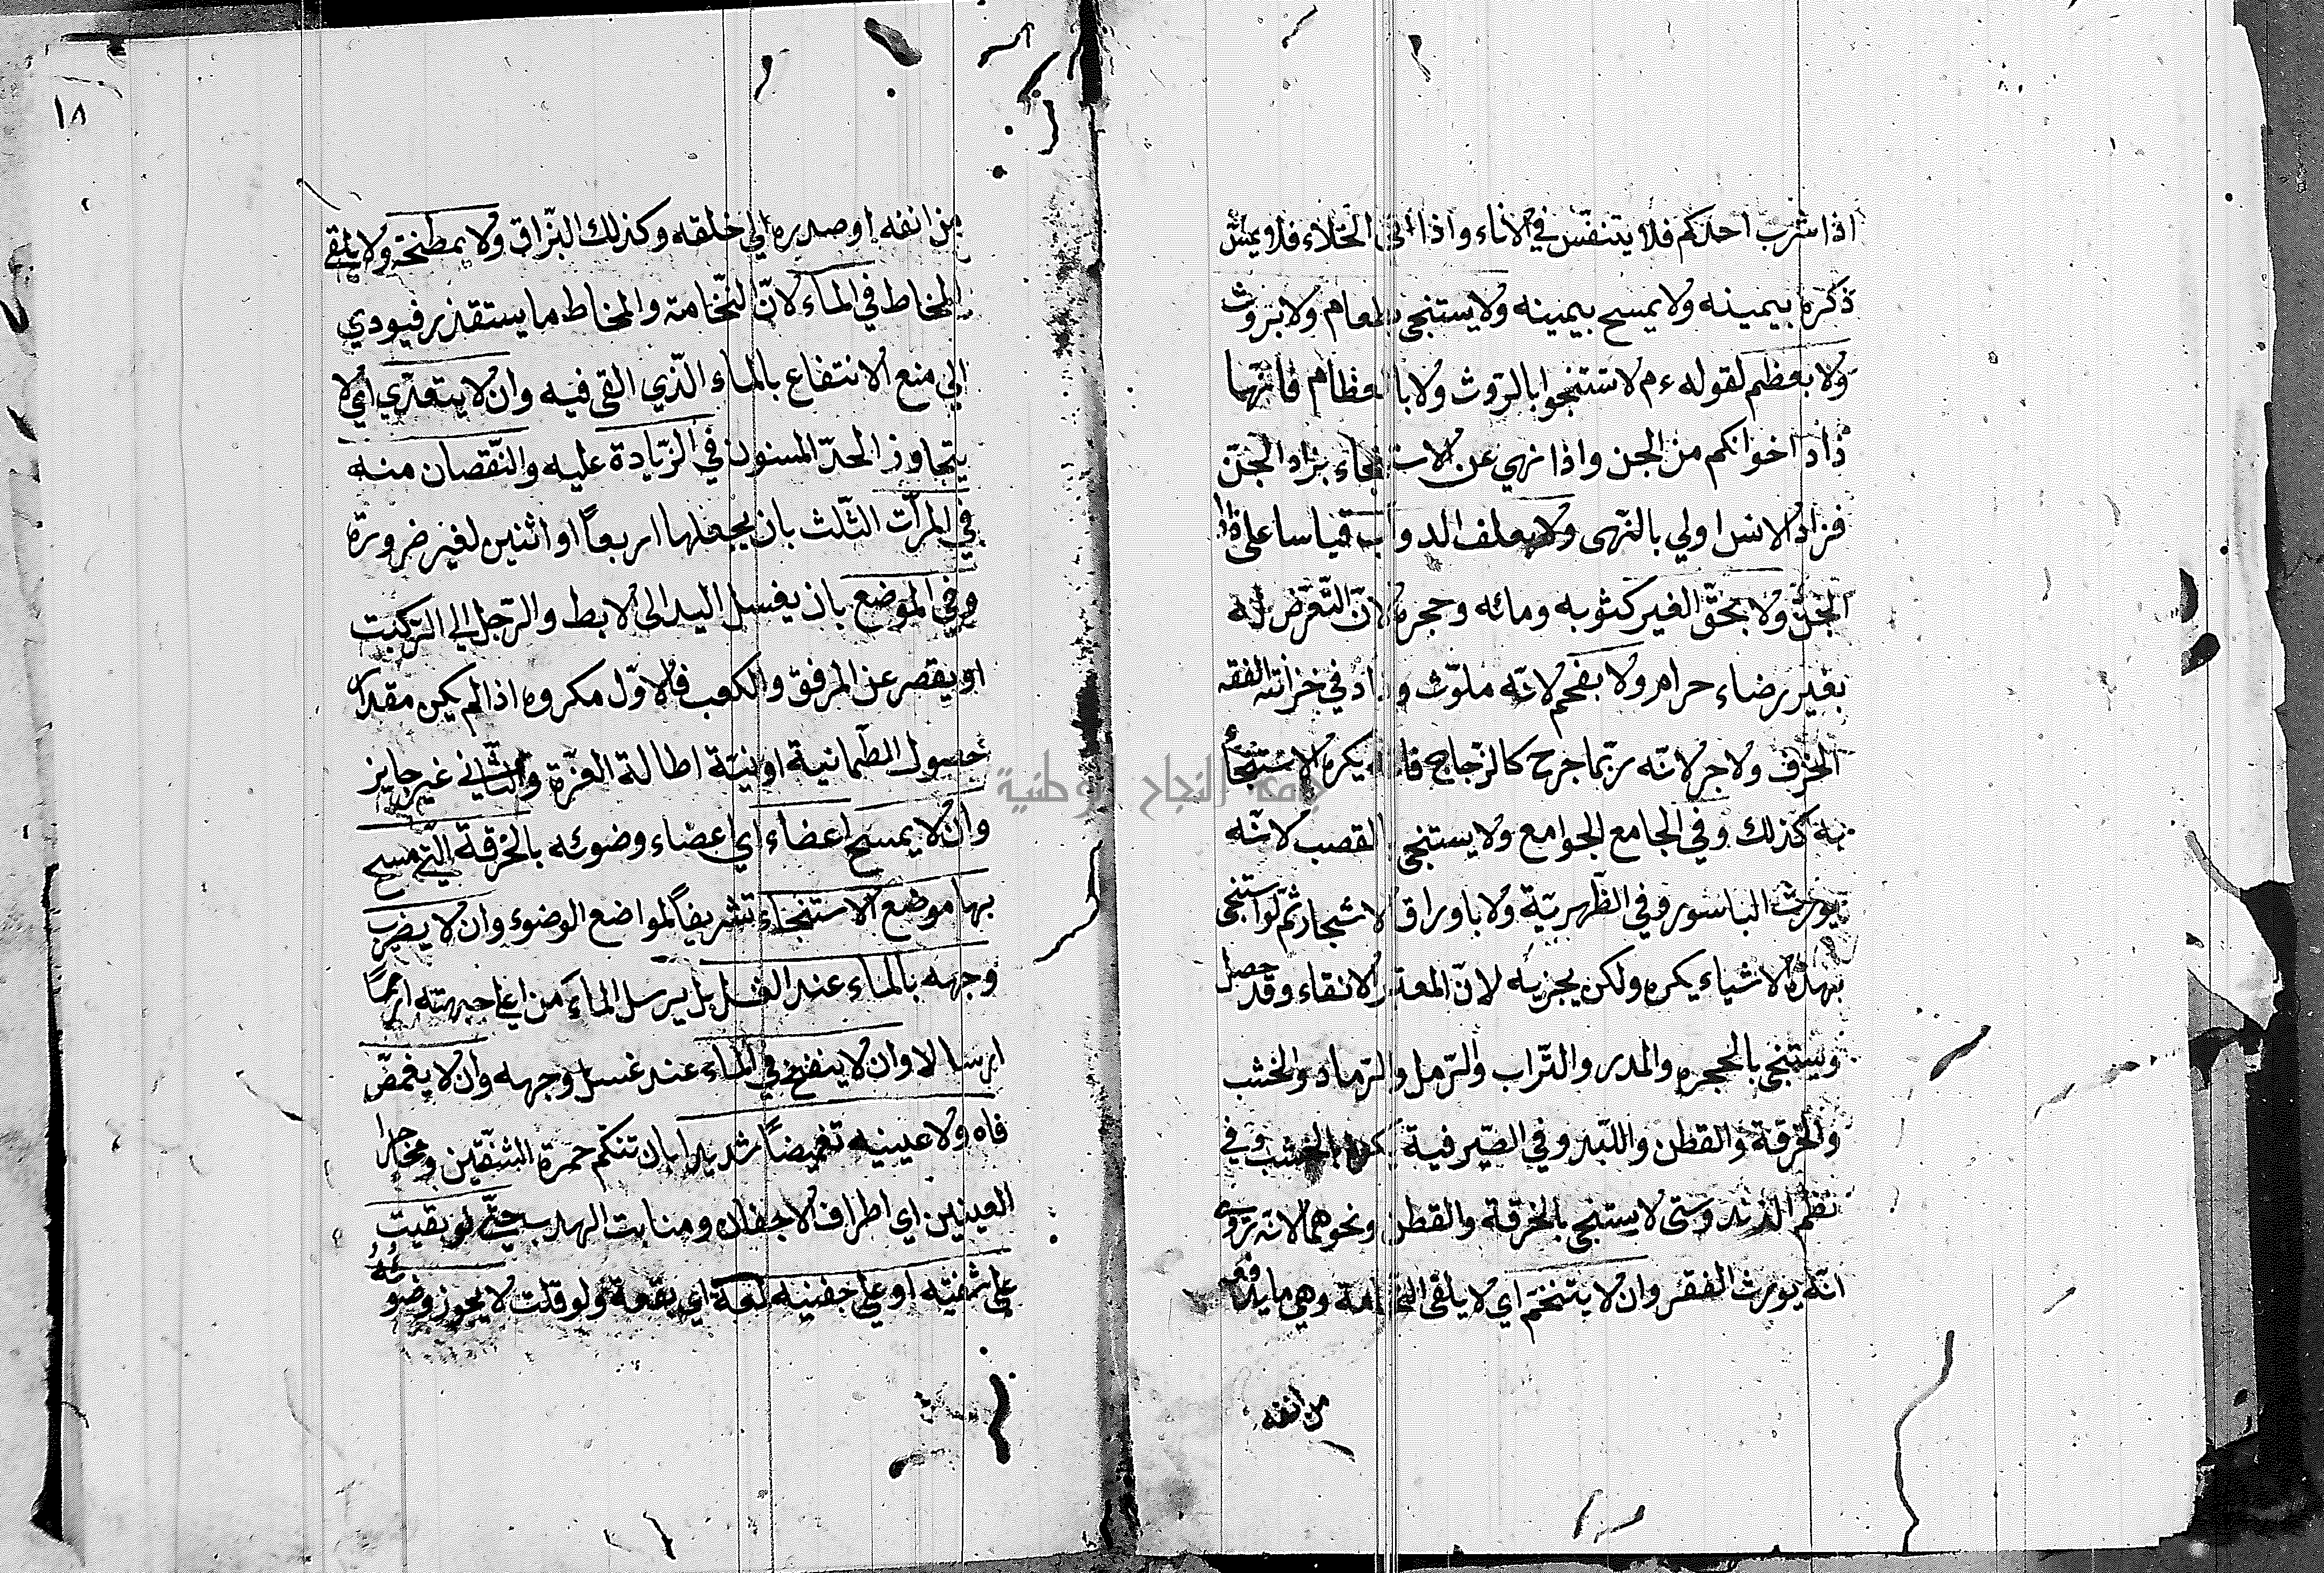 اذا شرب احدكم فلا يتنفس في الاناء واذا اتى الخلاء فلا يمسّ
ذكره بيمينه ولا يمسح بيمينه ولا يستنجى بطعام ولا بروث
ولا بعظم لقوله ءم لا تستنجوا بالرّوث ولا بالعظام فانّهما
زاد اخوانكم من الجن واذا نهي عن الاستنجاء بزاد الجنّ
فزاد الانس اولي بالنّهى ولا بعلف الدواب قياسا على زاد
الجنّ ولا بحقّ الغير كثوبه ومائه وحجره لانّ التّعرّض له
بغير رضاء حرام ولا بفحم لانّه ملوّث وزاد في خزانة الفقه
الخزف ولاجر لانّه ربّما جرح كالزّجاج فانه يكره الاستنجاء
به كذلك وفي الجامع الجوامع ولا يستنجى بالقصب لانّه
يورث الباسور وفي الظّهريّة ولا باوراق الاشجار ثمّ لو استنجى
بهذه الاشياء يكره ولكن يجزيه لانّ المعتبر الانقاء وقد حصل
ويستنجى بالحجره والمدر والتّراب والرّمل والرّماد والخشب
والخرقة والقطن واللّبد وفي الصّيرفية يكره بالخشب وفي
نظم الزندوستى لا يستنجى بالخرقة والقطن ونحوهما لانه روى
انّه يورث الفقر وان لا يتنخّم اي لا يلقى النّخامة وهي ما يدفعه
من انفه
١٨
من انفه او صدره الي خلقه وكذلك البزّاق ولا يمطنخة ولا يلقى
المخاط في الماء لانّ النّخامة والمخاط ما يستقذر فيودي
الي منع الانتفاع بالماء الّذي القى فيه وان لا يتعدّي اي لا
يتجاوز الحدّ المسنون في الزّيادة عليه والنّقصان منه
في المرّات الثّلث بان يجعلها اربعاً او اثنين لغير ضرورة
وفي الموضع بان يغسل اليد الى الابط والرّجل الي الرّكبت
او يقصر عن المرفق والكعب فالاوّل مكروه اذا لم يكن مقدار
حصول الطّمانية او نيّة اطالة الغرّة والثّاني غير جايز
وان لا يمسح اعضاء اي اعضاء وضوئه بالخرقة الّتي مسح
بها موضع الاستنجاء تشريفاً لمواضع الوضوء وان لا يضرب
وجهه بالماء عند الغسل بل يرسل الماء من اعلى جبهته
ارسالا وان لا ينفخ في الماء عند غسل وجهه وان لا يغمّض
فاه ولا عينيه تغميضاً شديدا بان تنكتم حمرة الشّفتين ومحاجر
العينين اي اطراف الاجفان ومنابت الهدب حتّى لو بقيت
على شفتيه او على جفنيه لمعة اي بقعة ولو قلّت لا يجوز وضوئه
جامعة النجاح الوطنية